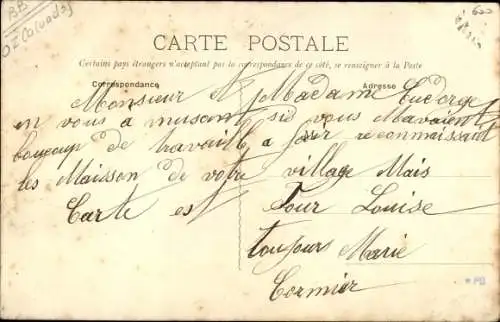 BB
CARTE POSTALE
Certains pays étrangers n'acceptant pas la correspondance de ce côté, se renseigner à la Poste
Correspondance
Adresse
Monsieur et Madame
en vous a musom si vous
boucoup de travaill a faser reconnaissant
les Maisson de votre village Mais
Carte est Pour Louise
toujours Marie
Cormier